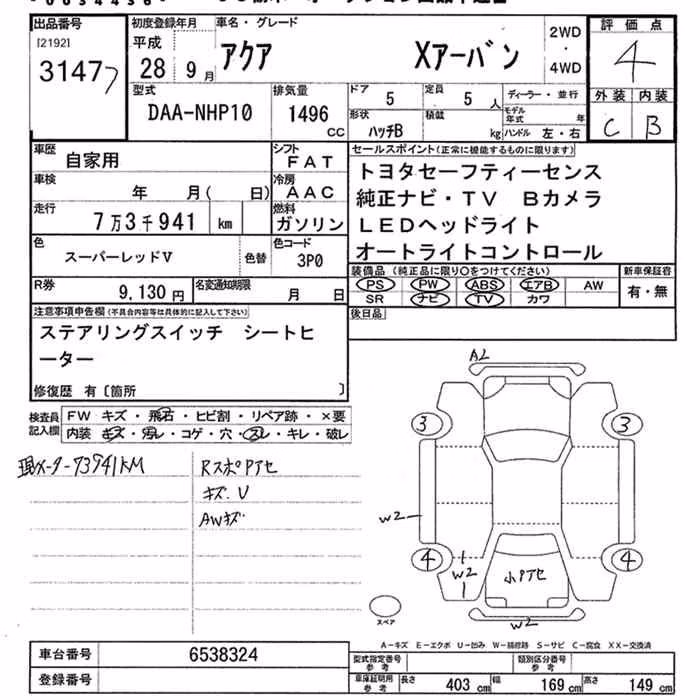 出品番号
[2192]
3147
初度登録年月
平成
28 9月
車名・グレード
アクア Xアーバン
2WD
・
4WD
評価点
4
外装 内装
C B
型式
DAA-NHP10
排気量
1496
CC
ドア
5
定員
5 人
形状
ハッチB
積載
kg
ディーラー・並行
モデル
年式
年
ハンドル 左・右
車歴
自家用
シフト
FAT
車検
年 月( 日)
冷房
AAC
走行
7万3千941 km
燃料
ガソリン
色
スーパーレッドV
色替
色コード
3P0
R券
9,130 円
名変通知期限
月 日
セールスポイント(正常に機能するものに限ります)
トヨタセーフティーセンス
純正ナビ・TV Bカメラ
LEDヘッドライト
オートライトコントロール
装備品 (純正品に限り○をつけてください)
PS PW ABS エアB AW
SR ナビ TV カワ
新車保証書
有・無
後日品
注意事項申告欄(不具合内容等は具体的に記入して下さい)
ステアリングスイッチ シートヒ
ーター
修復歴 有〔箇所 〕
検査員
記入欄
FW キズ・飛石・ヒビ割・リペア跡・×要
内装 キズ・汚レ・コゲ・穴・スレ・キレ・破レ
現メーター73941KM
RスポPアセ
キズ.V
AWキズ
A2
3 3
W2
4 4
W2
小Pアセ
W2
スペア
A-キズ E-エクボ U-凹み W-補修跡 S-サビ C-腐食 XX-交換済
車台番号
6538324
登録番号
型式指定番号
参考
類別区分番号
参考
車庫証明用
参考
長さ 403 cm 幅 169 cm 高さ 149 cm